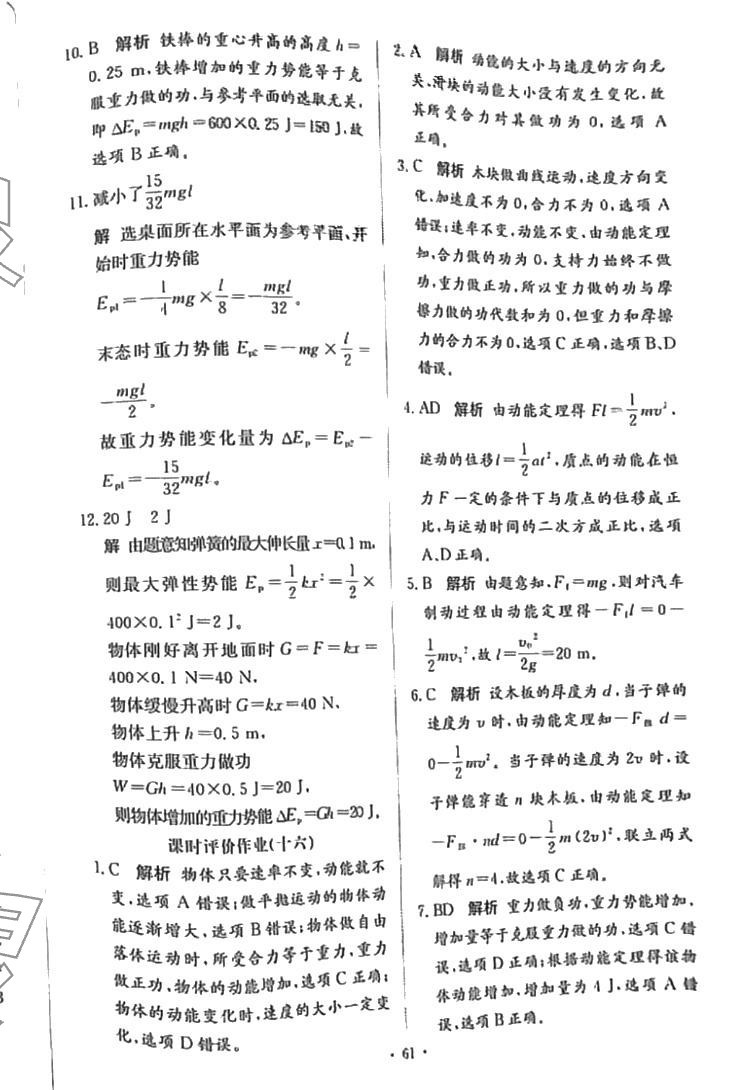 10. B 解析 铁棒的重心升高的高度 h=
0.25 m,铁棒增加的重力势能等于克
服重力做的功,与参考平面的选取无关,
即 ΔEₚ=mgh=600×0.25 J=150 J,故
选项 B 正确。
11. 减小了 15/32 mgl
解 选桌面所在水平面为参考平面,开
始时重力势能
Eₚ₁=−1/4 mg×l/8=−mgl/32。
末态时重力势能 Eₚ₂=−mg×l/2=
−mgl/2。
故重力势能变化量为 ΔEₚ=Eₚ₂−
Eₚ₁=−15/32 mgl。
12. 20 J 2 J
解 由题意知弹簧的最大伸长量 x=0.1 m,
则最大弹性势能 Eₚ=1/2 kx²=1/2×
400×0.1² J=2 J。
物体刚好离开地面时 G=F=kx=
400×0.1 N=40 N,
物体缓慢升高时 G=kx=40 N,
物体上升 h=0.5 m,
物体克服重力做功
W=Gh=40×0.5 J=20 J,
则物体增加的重力势能 ΔEₚ=Gh=20 J。
课时评价作业(十六)
1. C 解析 物体只要速率不变,动能就不
变,选项 A 错误;做平抛运动的物体动
能逐渐增大,选项 B 错误;物体做自由
落体运动时,所受合力等于重力,重力
做正功,物体的动能增加,选项 C 正确;
物体的动能变化时,速度的大小一定变
化,选项 D 错误。
2. A 解析 动能的大小与速度的方向无
关,滑块的动能大小没有发生变化,故
其所受合力对其做功为 0,选项 A
正确。
3. C 解析 木块做曲线运动,速度方向变
化,加速度不为 0,合力不为 0,选项 A
错误;速率不变,动能不变,由动能定理
知,合力做的功为 0,支持力始终不做
功,重力做正功,所以重力做的功与摩
擦力做的功代数和为 0,但重力和摩擦
力的合力不为 0,选项 C 正确,选项 B、D
错误。
4. AD 解析 由动能定理得 Fl=1/2 mv²,
运动的位移 l=1/2 at²,质点的动能在恒
力 F 一定的条件下与质点的位移成正
比,与运动时间的二次方成正比,选项
A、D 正确。
5. B 解析 由题意知,Ff=mg,则对汽车
制动过程由动能定理得 −Ffl=0−
1/2 mv₀²,故 l=v₀²/2g=20 m。
6. C 解析 设木板的厚度为 d,当子弹的
速度为 v 时,由动能定理知 −F阻 d=
0−1/2 mv²。当子弹的速度为 2v 时,设
子弹能穿透 n 块木板,由动能定理知
−F阻·nd=0−1/2 m(2v)²,联立两式
解得 n=4,故选项 C 正确。
7. BD 解析 重力做负功,重力势能增加,
增加量等于克服重力做的功,选项 C 错
误,选项 D 正确;根据动能定理得该物
体动能增加,增加量为 1 J,选项 A 错
误,选项 B 正确。
· 61 ·